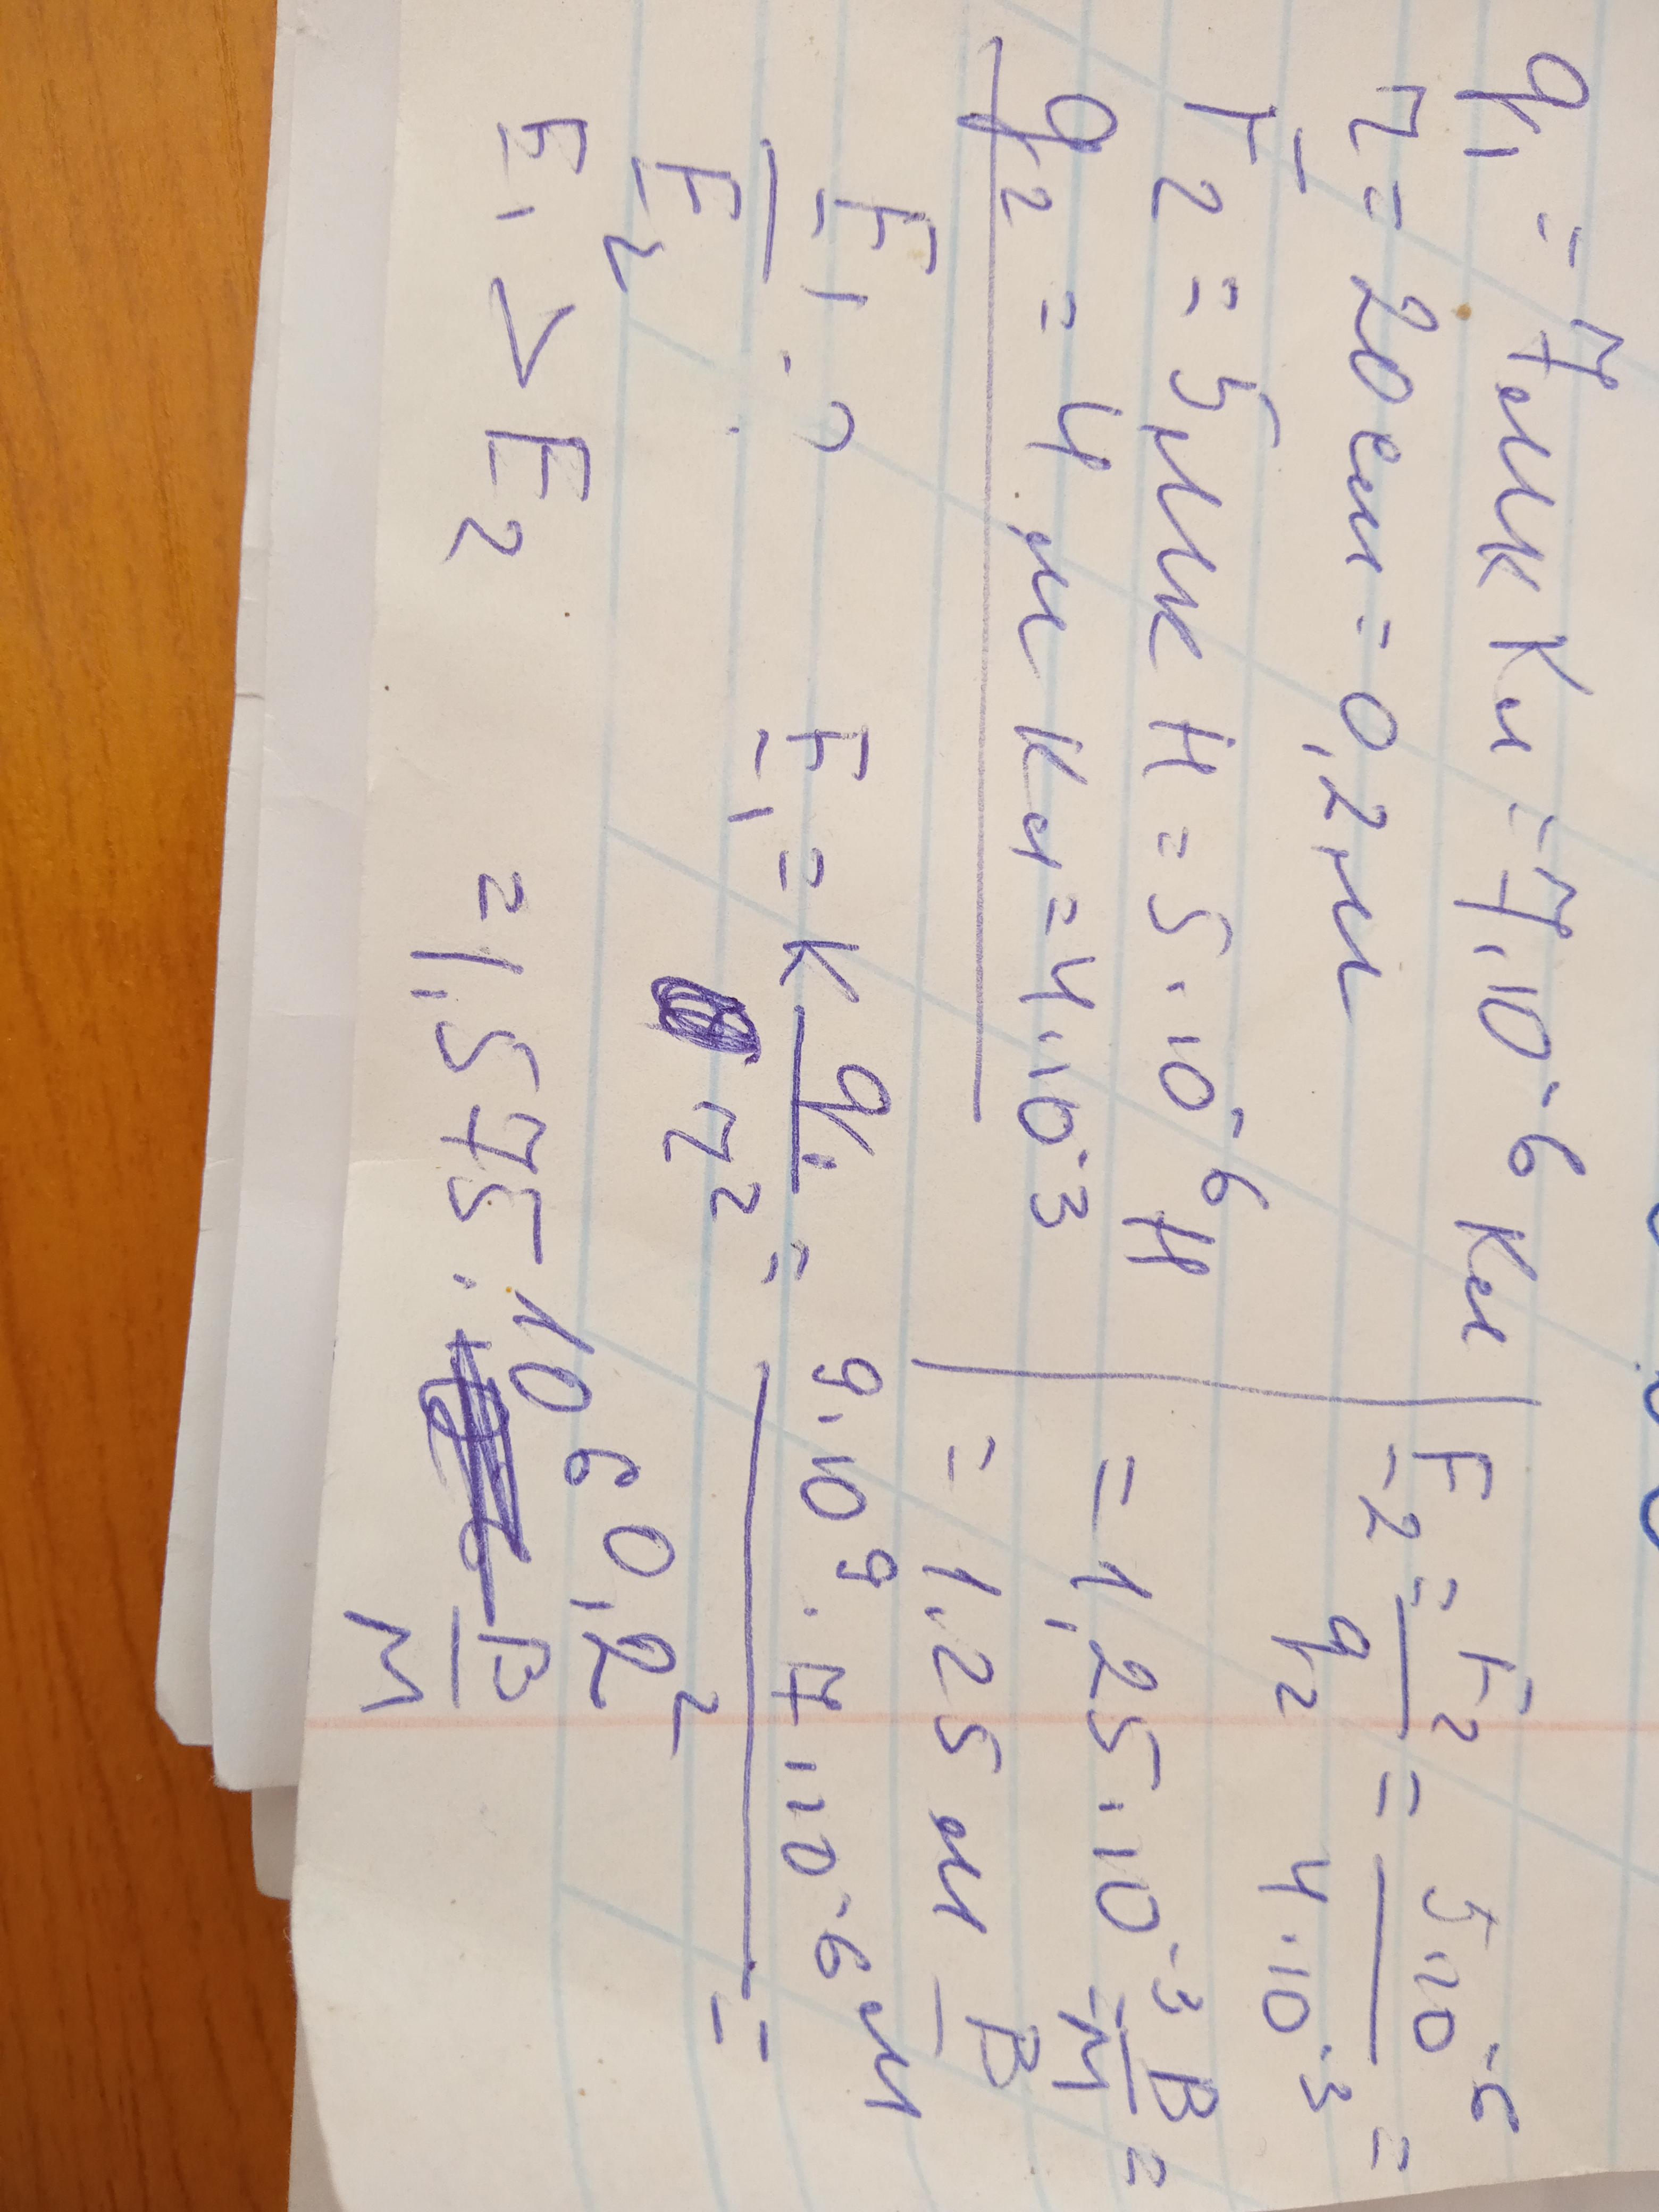 q₁ = 7мкКл = 7·10⁻⁶ Кл
r = 20см = 0,2м
F₂ = 5мкН = 5·10⁻⁶ Н
q₂ = 4 мКл = 4·10⁻³
E₁ - ?
E₂
E₁ > E₂
E₂ = F₂/q₂ = 5·10⁻⁶/4·10⁻³ =
= 1,25·10⁻³ В/м =
= 1,25 м В/м
E₁ = k q₁/r² = 9·10⁹·7·10⁻⁶/0,2² =
= 1,575·10⁶ В/м